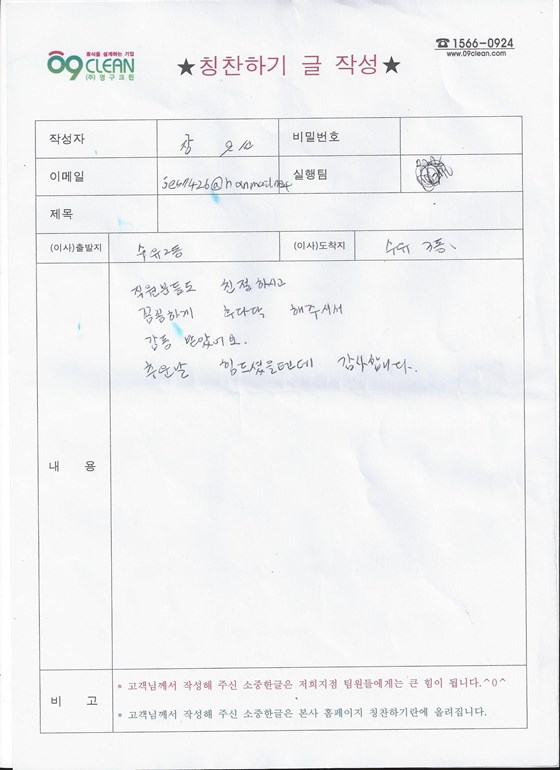 휴식을 설계하는 기업
09 CLEAN
(주)영구크린
☎ 1566-0924
www.09clean.com
★칭찬하기 글 작성★
작성자
비밀번호
이메일
실행팀
제목
(이사)출발지 수유2동 (이사)도착지 수유 3동.
내 용
직원분들도 친절하시고
꼼꼼하게 후다닥 해주셔서
감동 받았어요.
추운날 힘드셨을텐데 감사합니다.
비 고
* 고객님께서 작성해 주신 소중한글은 저희지점 팀원들에게는 큰 힘이 됩니다.^0^
* 고객님께서 작성해 주신 소중한글은 본사 홈페이지 칭찬하기란에 올려집니다.